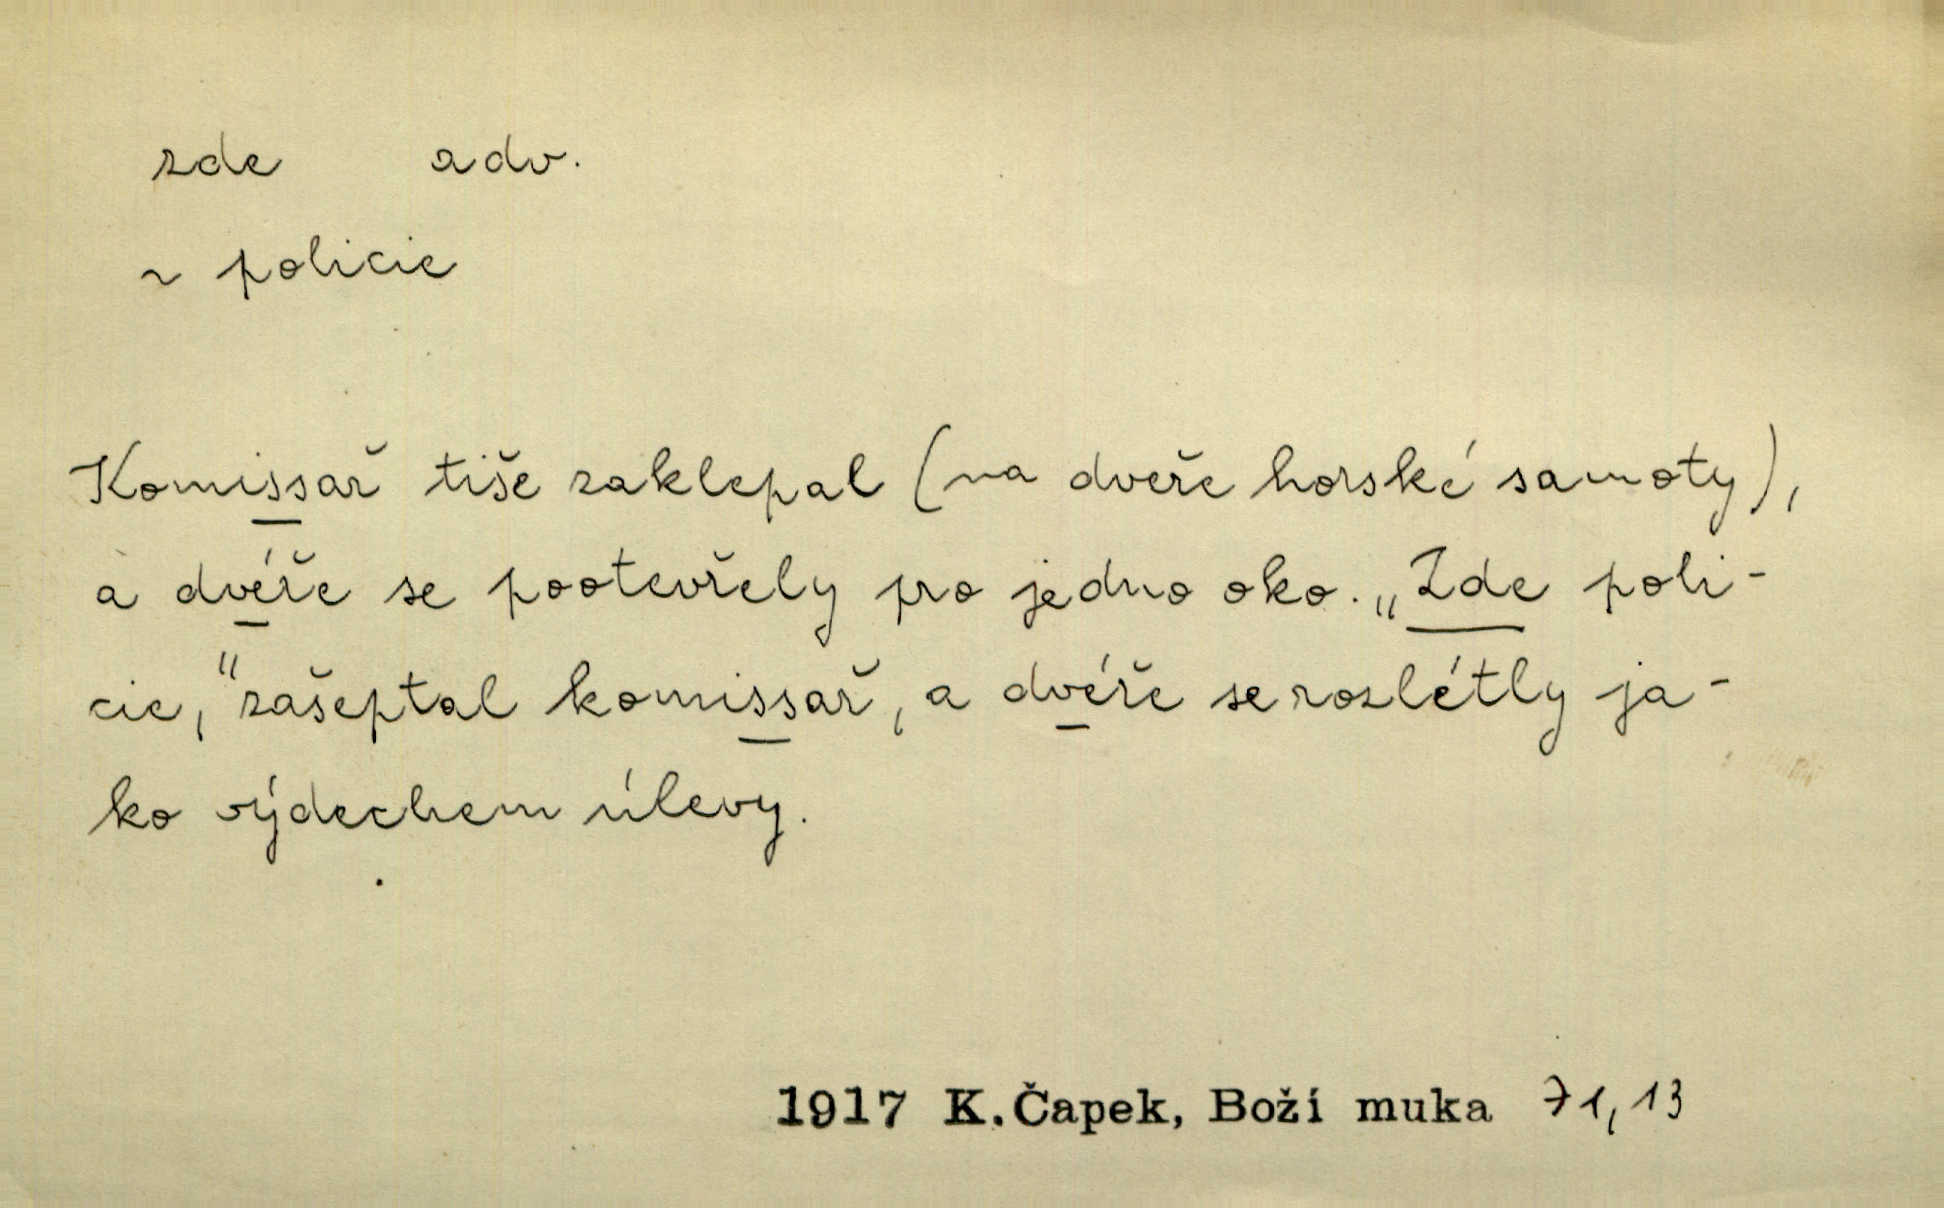 zde adv.
~ policie
Komissař tiše zaklepal (na dveře horské samoty),
a dvéře se pootevřely pro jedno oko. „Zde poli-
cie," zašeptal komissař, a dvéře se rozlétly ja-
ko výdechem úlevy.
1917 K. Čapek, Boží muka 71,13